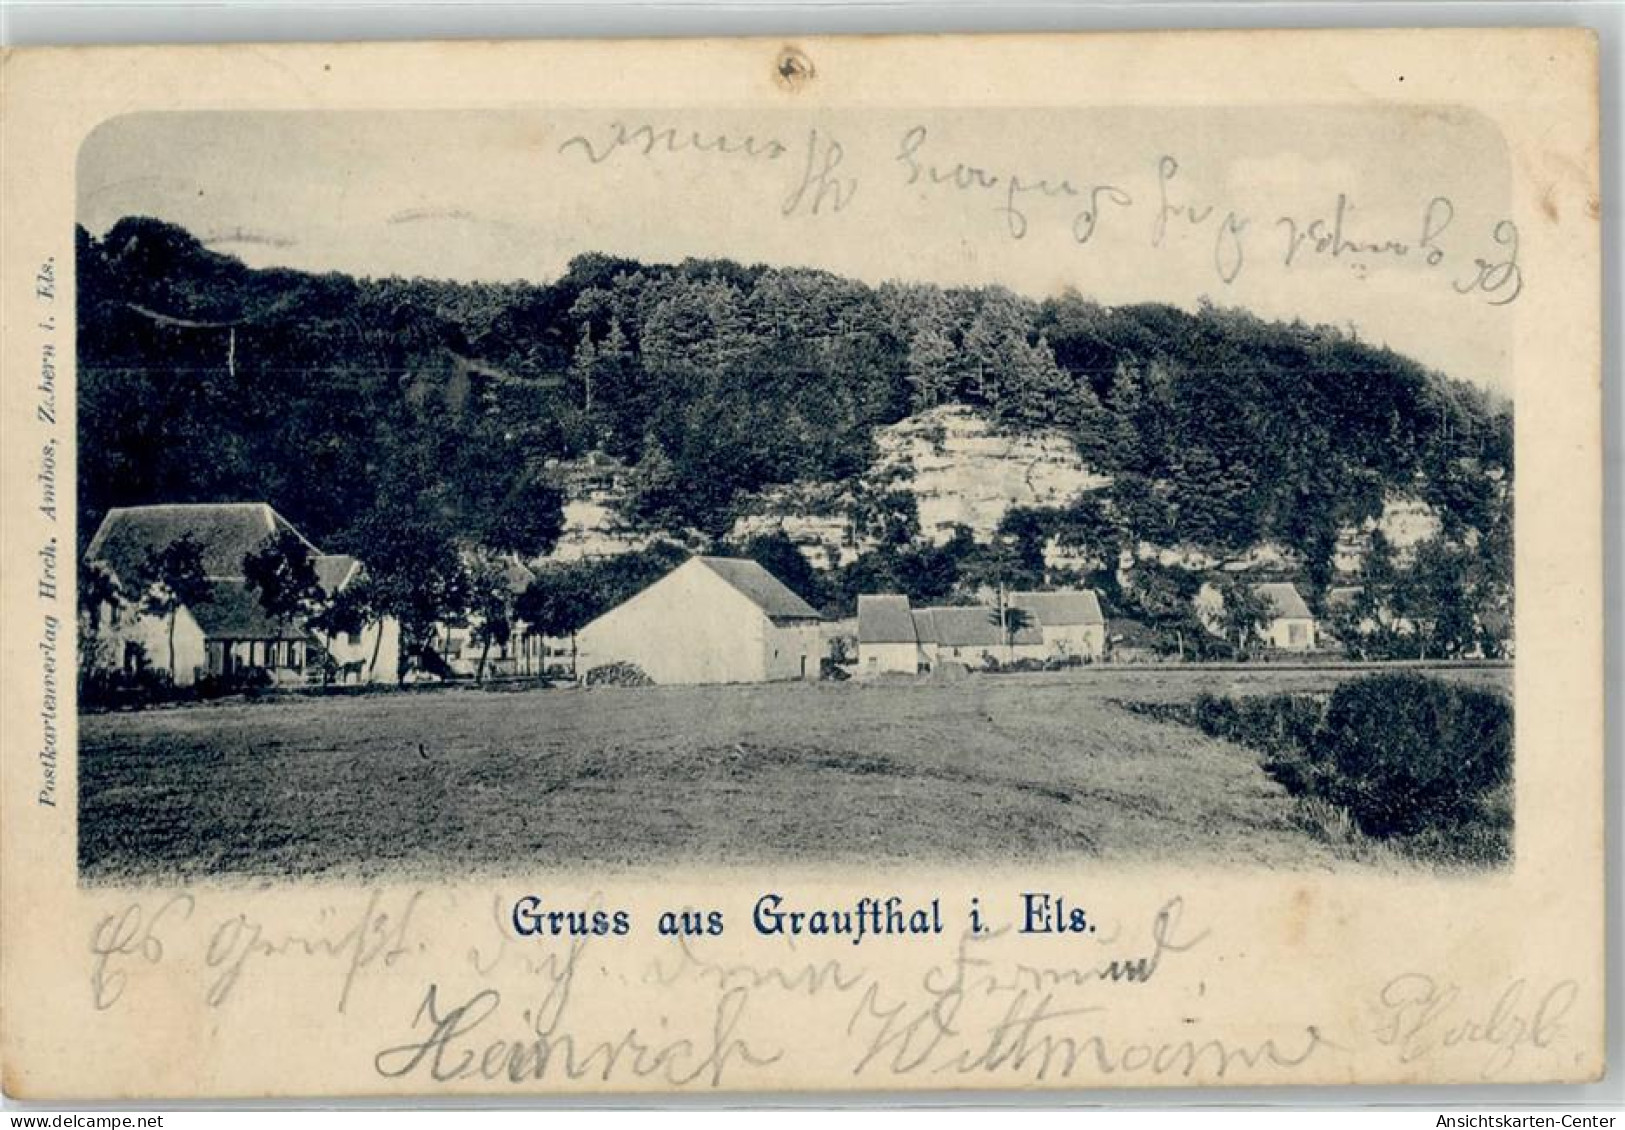 Postkartenverlag Hrch. Ambos, Zabern i. Els.
Gruss aus Graufthal i. Els.
Es grüßt dich dein Freund
Heinrich Wittmann
Ansichtskarten-Center